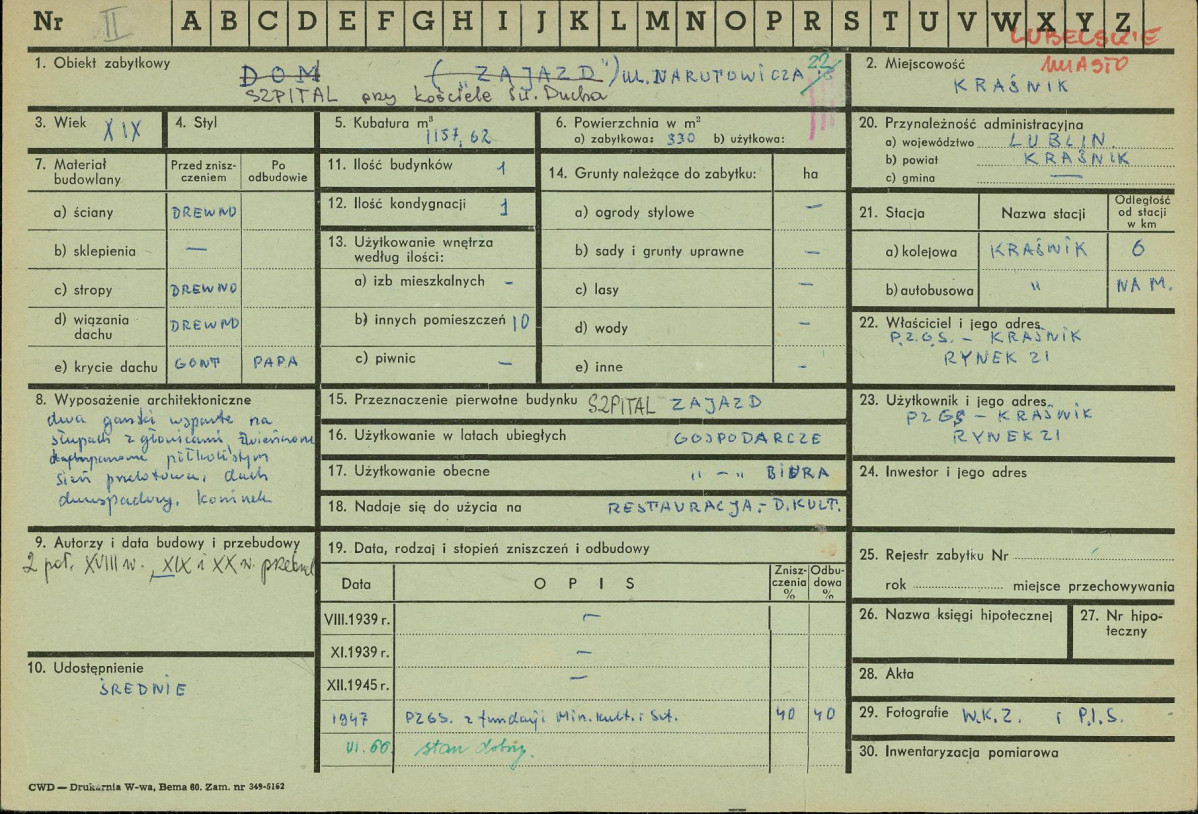 Nr II A B C D E F G H I J K L M N O P R S T U V W X Y Z
LUBELSKIE
MIASTO
1. Obiekt zabytkowy
DOM ("ZAJAZD") ul. NARUTOWICZA 22
SZPITAL przy kościele św. Ducha
2. Miejscowość
KRAŚNIK
3. Wiek XIX
4. Styl
5. Kubatura m³
1157,62
6. Powierzchnia w m²
a) zabytkowa: 330 b) użytkowa:
20. Przynależność administracyjna
a) województwo LUBLIN
b) powiat KRAŚNIK
c) gmina —
7. Materiał budowlany
Przed zniszczeniem
Po odbudowie
a) ściany DREWNO
b) sklepienia —
c) stropy DREWNO
d) wiązania dachu DREWNO
e) krycie dachu GONT PAPA
11. Ilość budynków 1
12. Ilość kondygnacji 1
13. Użytkowanie wnętrza
według ilości:
a) izb mieszkalnych -
b) innych pomieszczeń 10
c) piwnic —
14. Grunty należące do zabytku: ha
a) ogrody stylowe —
b) sady i grunty uprawne —
c) lasy —
d) wody —
e) inne -
21. Stacja
Nazwa stacji
Odległość od stacji w km
a) kolejowa KRAŚNIK 6
b) autobusowa " NA M.
22. Właściciel i jego adres
P.Z.G.S. - KRAŚNIK
RYNEK 21
8. Wyposażenie architektoniczne
dwa ganki wsparte na
słupach z głowicami, zwieńczone
półkolistym
sień przelotowa, dach
dwuspadowy, kominek
15. Przeznaczenie pierwotne budynku SZPITAL ZAJAZD
16. Użytkowanie w latach ubiegłych GOSPODARCZE
17. Użytkowanie obecne " - " BIURA
18. Nadaje się do użycia na RESTAURACJA,- D. KULT.
23. Użytkownik i jego adres
PZGS - KRAŚNIK
RYNEK 21
24. Inwestor i jego adres
9. Autorzy i data budowy i przebudowy
2 poł. XVIII w., XIX i XX w. przebud
19. Data, rodzaj i stopień zniszczeń i odbudowy
Data
OPIS
Zniszczenia %
Odbudowa %
VIII.1939 r. —
XI.1939 r. —
XII.1945 r. —
1947 PZGS. z fundacji Min. Kult. i Szt. 40 40
VI. 60. stan dobry.
25. Rejestr zabytku Nr
rok miejsce przechowywania
26. Nazwa księgi hipotecznej
27. Nr hipoteczny
10. Udostępnienie
ŚREDNIE
28. Akta
29. Fotografie W.K.Z. i P.I.S.
30. Inwentaryzacja pomiarowa
CWD — Drukarnia W-wa, Bema 60. Zam. nr 349-5162